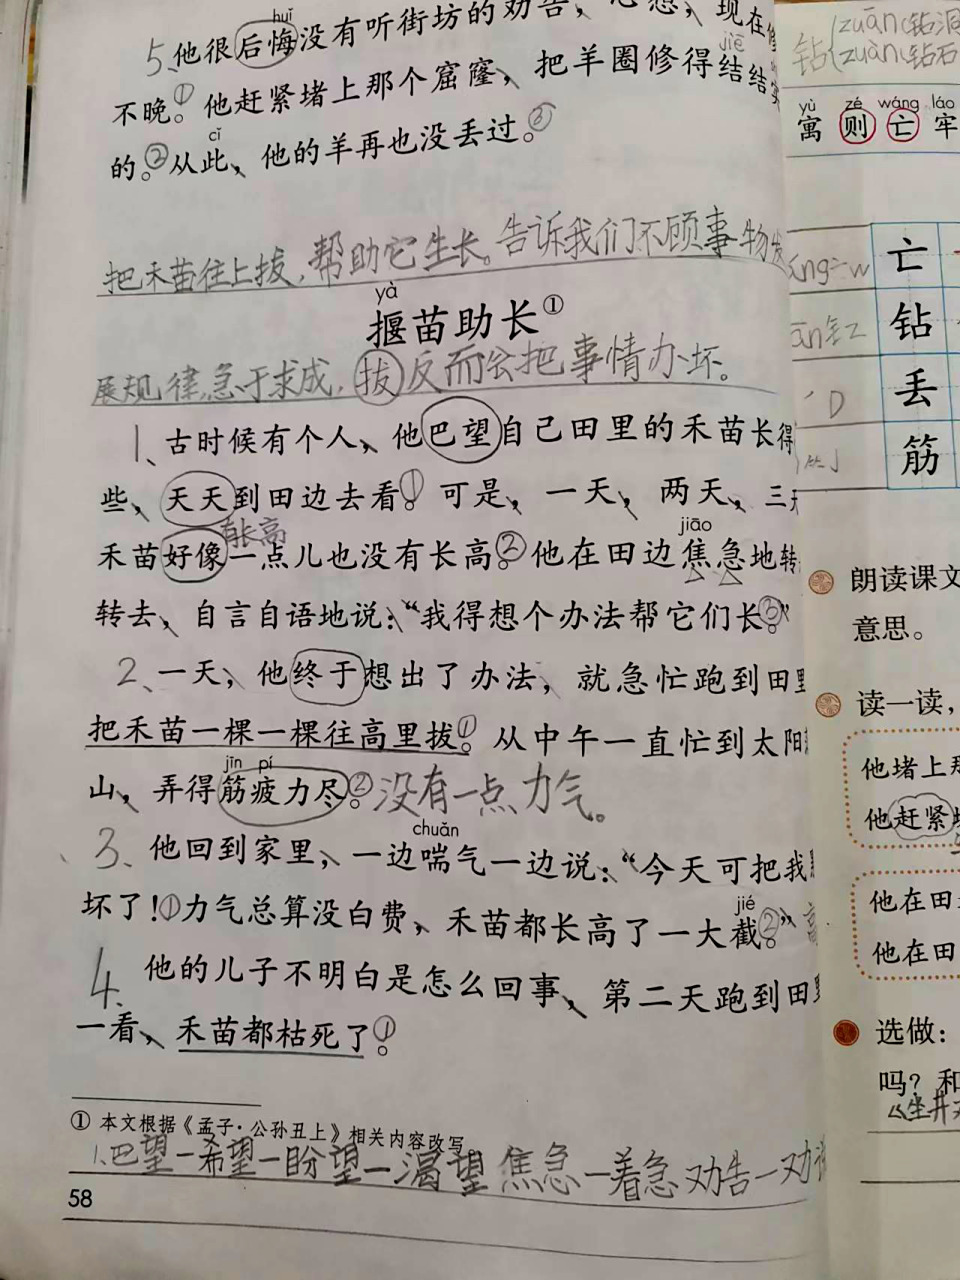 huǐ
5、他很后悔没有听街坊的劝告，心想，现在修
jiē
不晚。①他赶紧堵上那个窟窿、把羊圈修得结结实
cǐ
的。②从此、他的羊再也没丢过。③
把禾苗往上拔，帮助它生长。告诉我们不顾事物发
yà
揠苗助长①
展规律，急于求成，拔反而会把事情办坏。
1、古时候有个人、他巴望自己田里的禾苗长得
些、天天到田边去看。①可是、一天、两天、三天
有长高
禾苗好像一点儿也没有长高。②他在田边焦急地转
jiāo
转去、自言自语地说：“我得想个办法帮它们长。③”
2、一天，他终于想出了办法，就急忙跑到田里
把禾苗一棵一棵往高里拔。①从中午一直忙到太阳
jīn pí
山、弄得筋疲力尽。②没有一点力气。
chuǎn
3、他回到家里、一边喘气一边说：“今天可把我
jié
坏了！①力气总算没白费、禾苗都长高了一大截。②”
4、他的儿子不明白是怎么回事、第二天跑到田里
一看、禾苗都枯死了。①
① 本文根据《孟子·公孙丑上》相关内容改写。
1、巴望一希望一盼望一渴望 焦急一着急 劝告一劝
58
钻 zuān（钻洞
zuàn（钻石
yù zé wáng láo
寓 则 亡 牢
亡
钻
丢
筋
朗读课文
意思。
读一读，
他堵上那
他赶紧
他在田
他在田
选做：
吗？和
《坐井